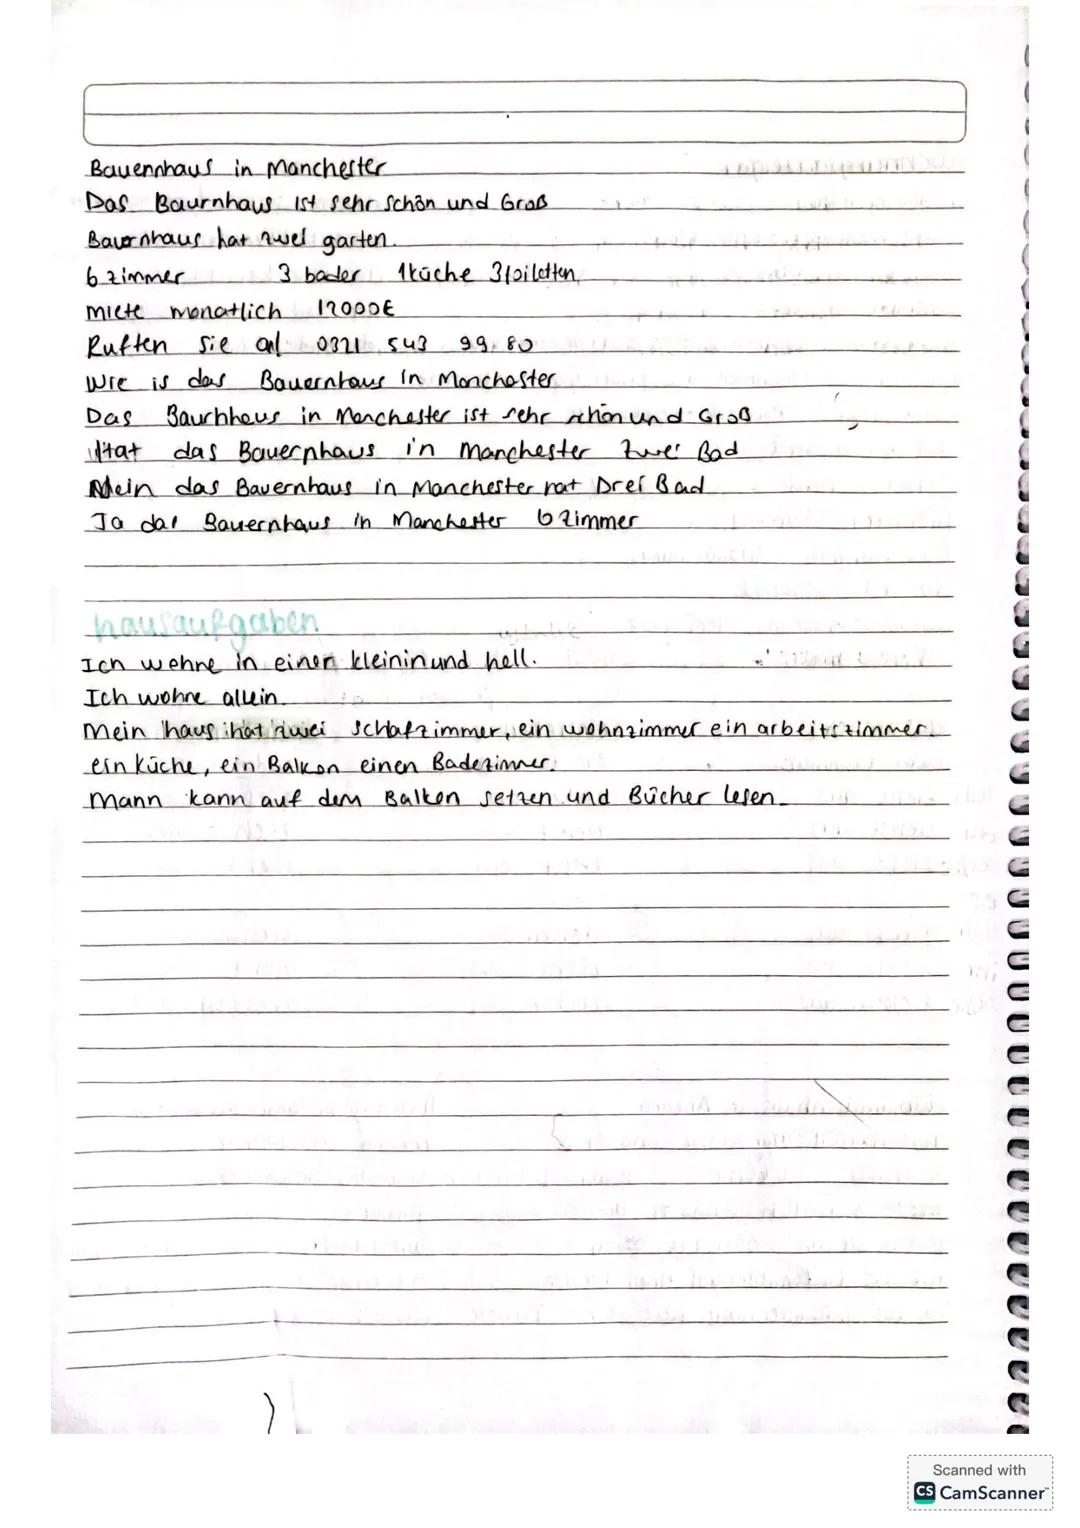 Bauennhaus in Manchester
Das Baurnhaus ist sehr schön und Groß
Bauornhaus hat zwei garten.
6 zimmer 3 bader 1 küche 3
miete monatlich 12000€
Ruften Sie an 0321 543 99, 80
Wie is das Bauernhaus in Manchaster
Das Baurhhaus in Manchester ist sehr schön und Groß
Hat das Bauernhaus in Manchester zwei Bad
Nein das Bauernhaus in Manchester hat Drei Bad
Ja das Bauernhaus in Manchester 6 zimmer
hausaufgaben
Ich wohne in einen kleinin und hell.
Ich wohne allein.
Mein haus hat zwei schlafzimmer, ein wohnzimmer ein arbeitszimmer.
ein küche, ein Balkon einen Badezimmer.
Mann kann auf dem Balkon setzen und Bücher lesen.
Scanned with
CS CamScanner